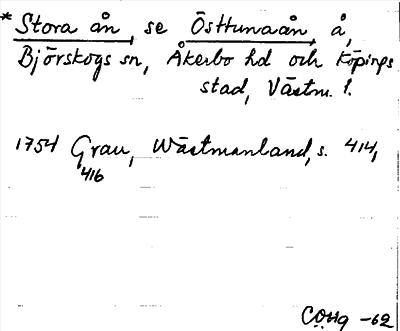 * Stora ån, se Östtunaån, å,
Björskogs sn, Åkerbo hd och Köpings
stad, Västm. l.
1754 Grau, Wästmanland, s. 414,
416
COHg -62